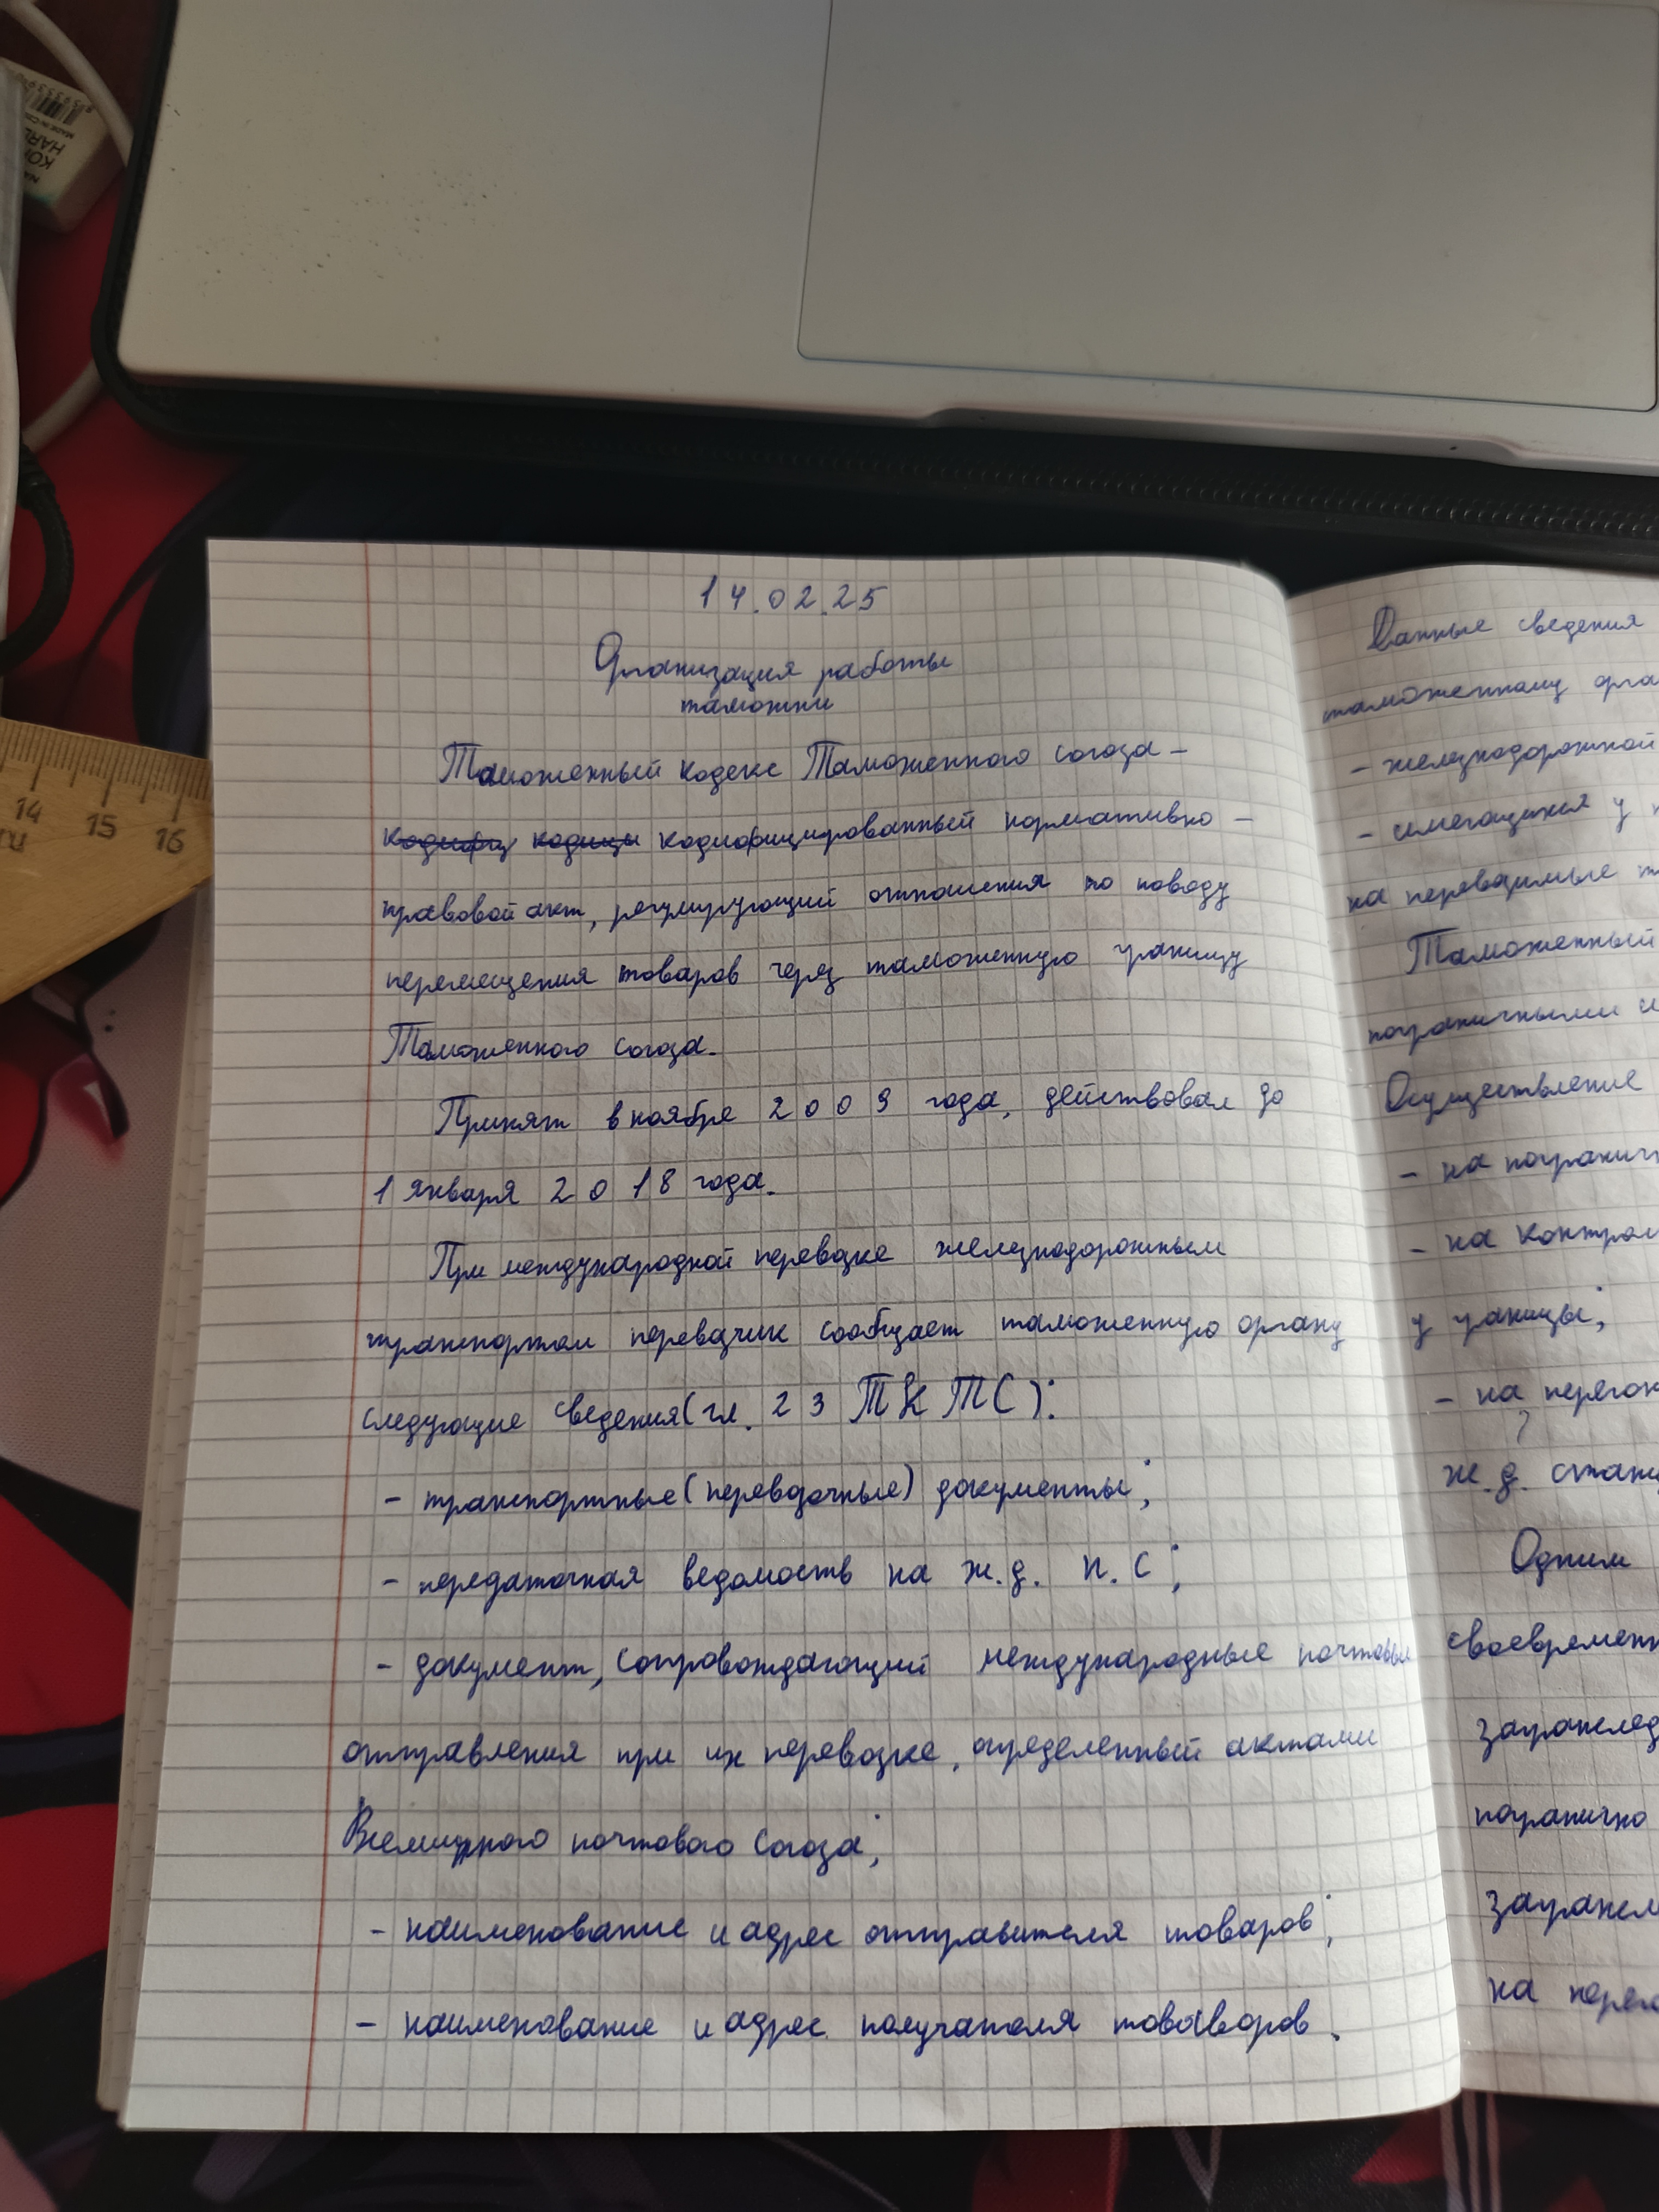 14.02.25
Организация работы
таможни
Таможенный кодекс Таможенного союза -
кодифиц кодицы кодиофицированный нормативно -
правовой акт, регулирующий отношения по поводу
перемещения товаров через таможенную границу
Таможенного союза.
Принят в ноябре 2009 года, действовал до
1 января 2018 года.
При международной перевозке железнодорожным
транспортом перевозчик сообщает таможенную органу
следующие сведения (гл. 23 ТК ТС):
- транспортные (перевозочные) документы;
- передаточная ведомость на ж.д. п.с;
- документ, сопровождающий международные почтовые
отправления при их перевозке, определенный актами
Всемирного почтового союза;
- наименование и адрес отправителя товаров;
- наименование и адрес получателя товаворов.
Данные сведения
таможенному орга
- железнодорожной
- имеющихся у
на перевозимые т
Таможенный
пограничными и
Осуществление
- на погранич
- на контрол
у границы;
- на перегон
ж.д. станц
Одним
своевремен
загранслед
погранично
на перего
14
15
16